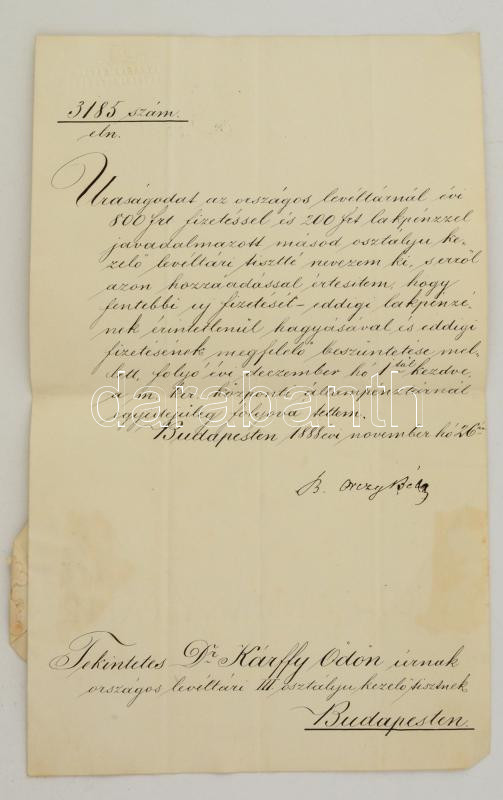 3185 szám.
eln.
Uraságodat az országos levéltárnál évi
800 frt fizetéssel és 200 frt lakpénzzel
javadalmazott másod osztályu ke-
zelő levéltári tisztté nevezem ki, s erről
azon hozzáadással értesitem, hogy
fentebbi uj fizetését - eddigi lakpénzé-
nek érintetlenül hagyásával és eddigi
fizetésének megfelelő beszüntetése mel-
lett, folyó évi deczember hó 1től kezdve,
a m. kir. központi állampénztárnál
egyidejüleg folyóvá tettem.
Budapesten 1888 évi november hó 26án
B. Orczy Béla
Tekintetes Dr Kárffy Ödön úrnak
országos levéltári III osztályu kezelő tisztnek
Budapesten.
darabanth